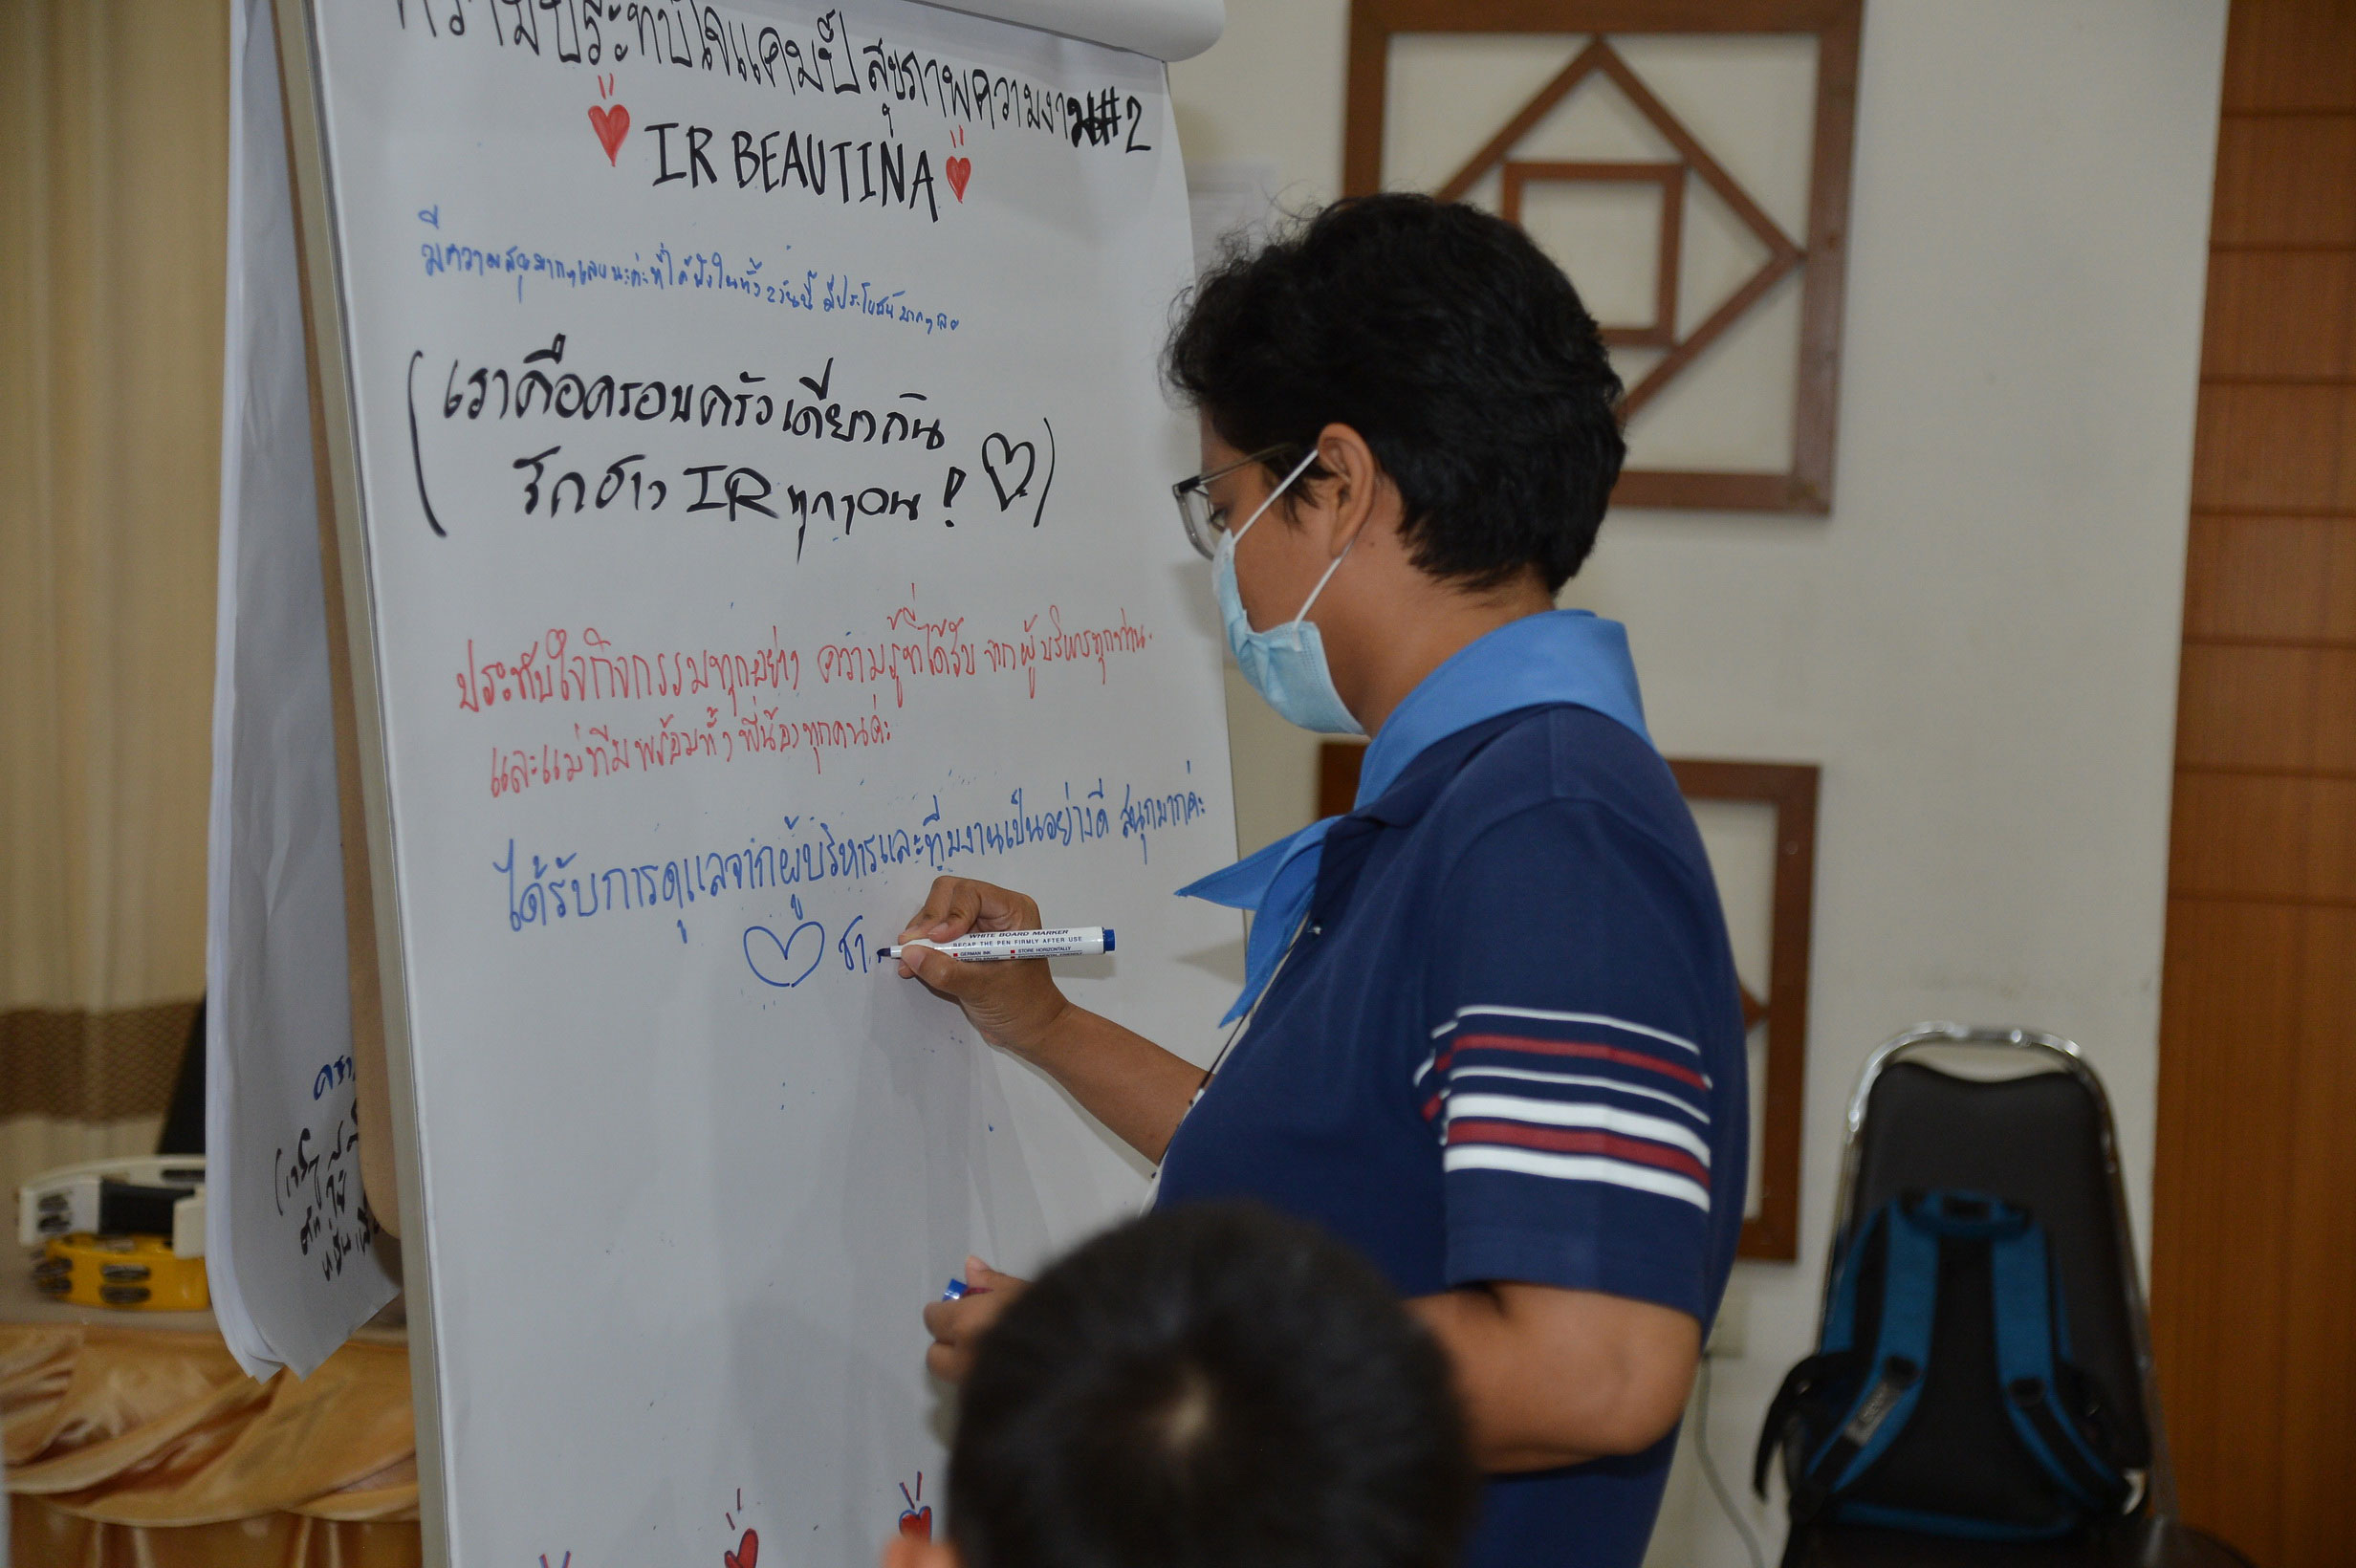 ความประทับใจแคมป์สุขภาพความงาม#2
IR BEAUTINA
มีความสุขมากๆเลยนะคะที่ได้ฟังในทั้ง2วันนี้ มีประโยชน์มากๆเลย
(เราคือครอบครัวเดียวกัน
รักชาว IR ทุกๆคน! )
ประทับใจกิจกรรมทุกอย่าง ความรู้ที่ได้รับ จากผู้บริหารทุกท่าน
และแม่ทีมพร้อมทั้งพี่น้องทุกคนค่ะ
ได้รับการดูแลจากผู้บริหารและทีมงานเป็นอย่างดี สนุกมากค่ะ
WHITE BOARD MARKER
RECAP THE PEN FIRMLY AFTER USE
GERMAN INK
STORE HORIZONTALLY